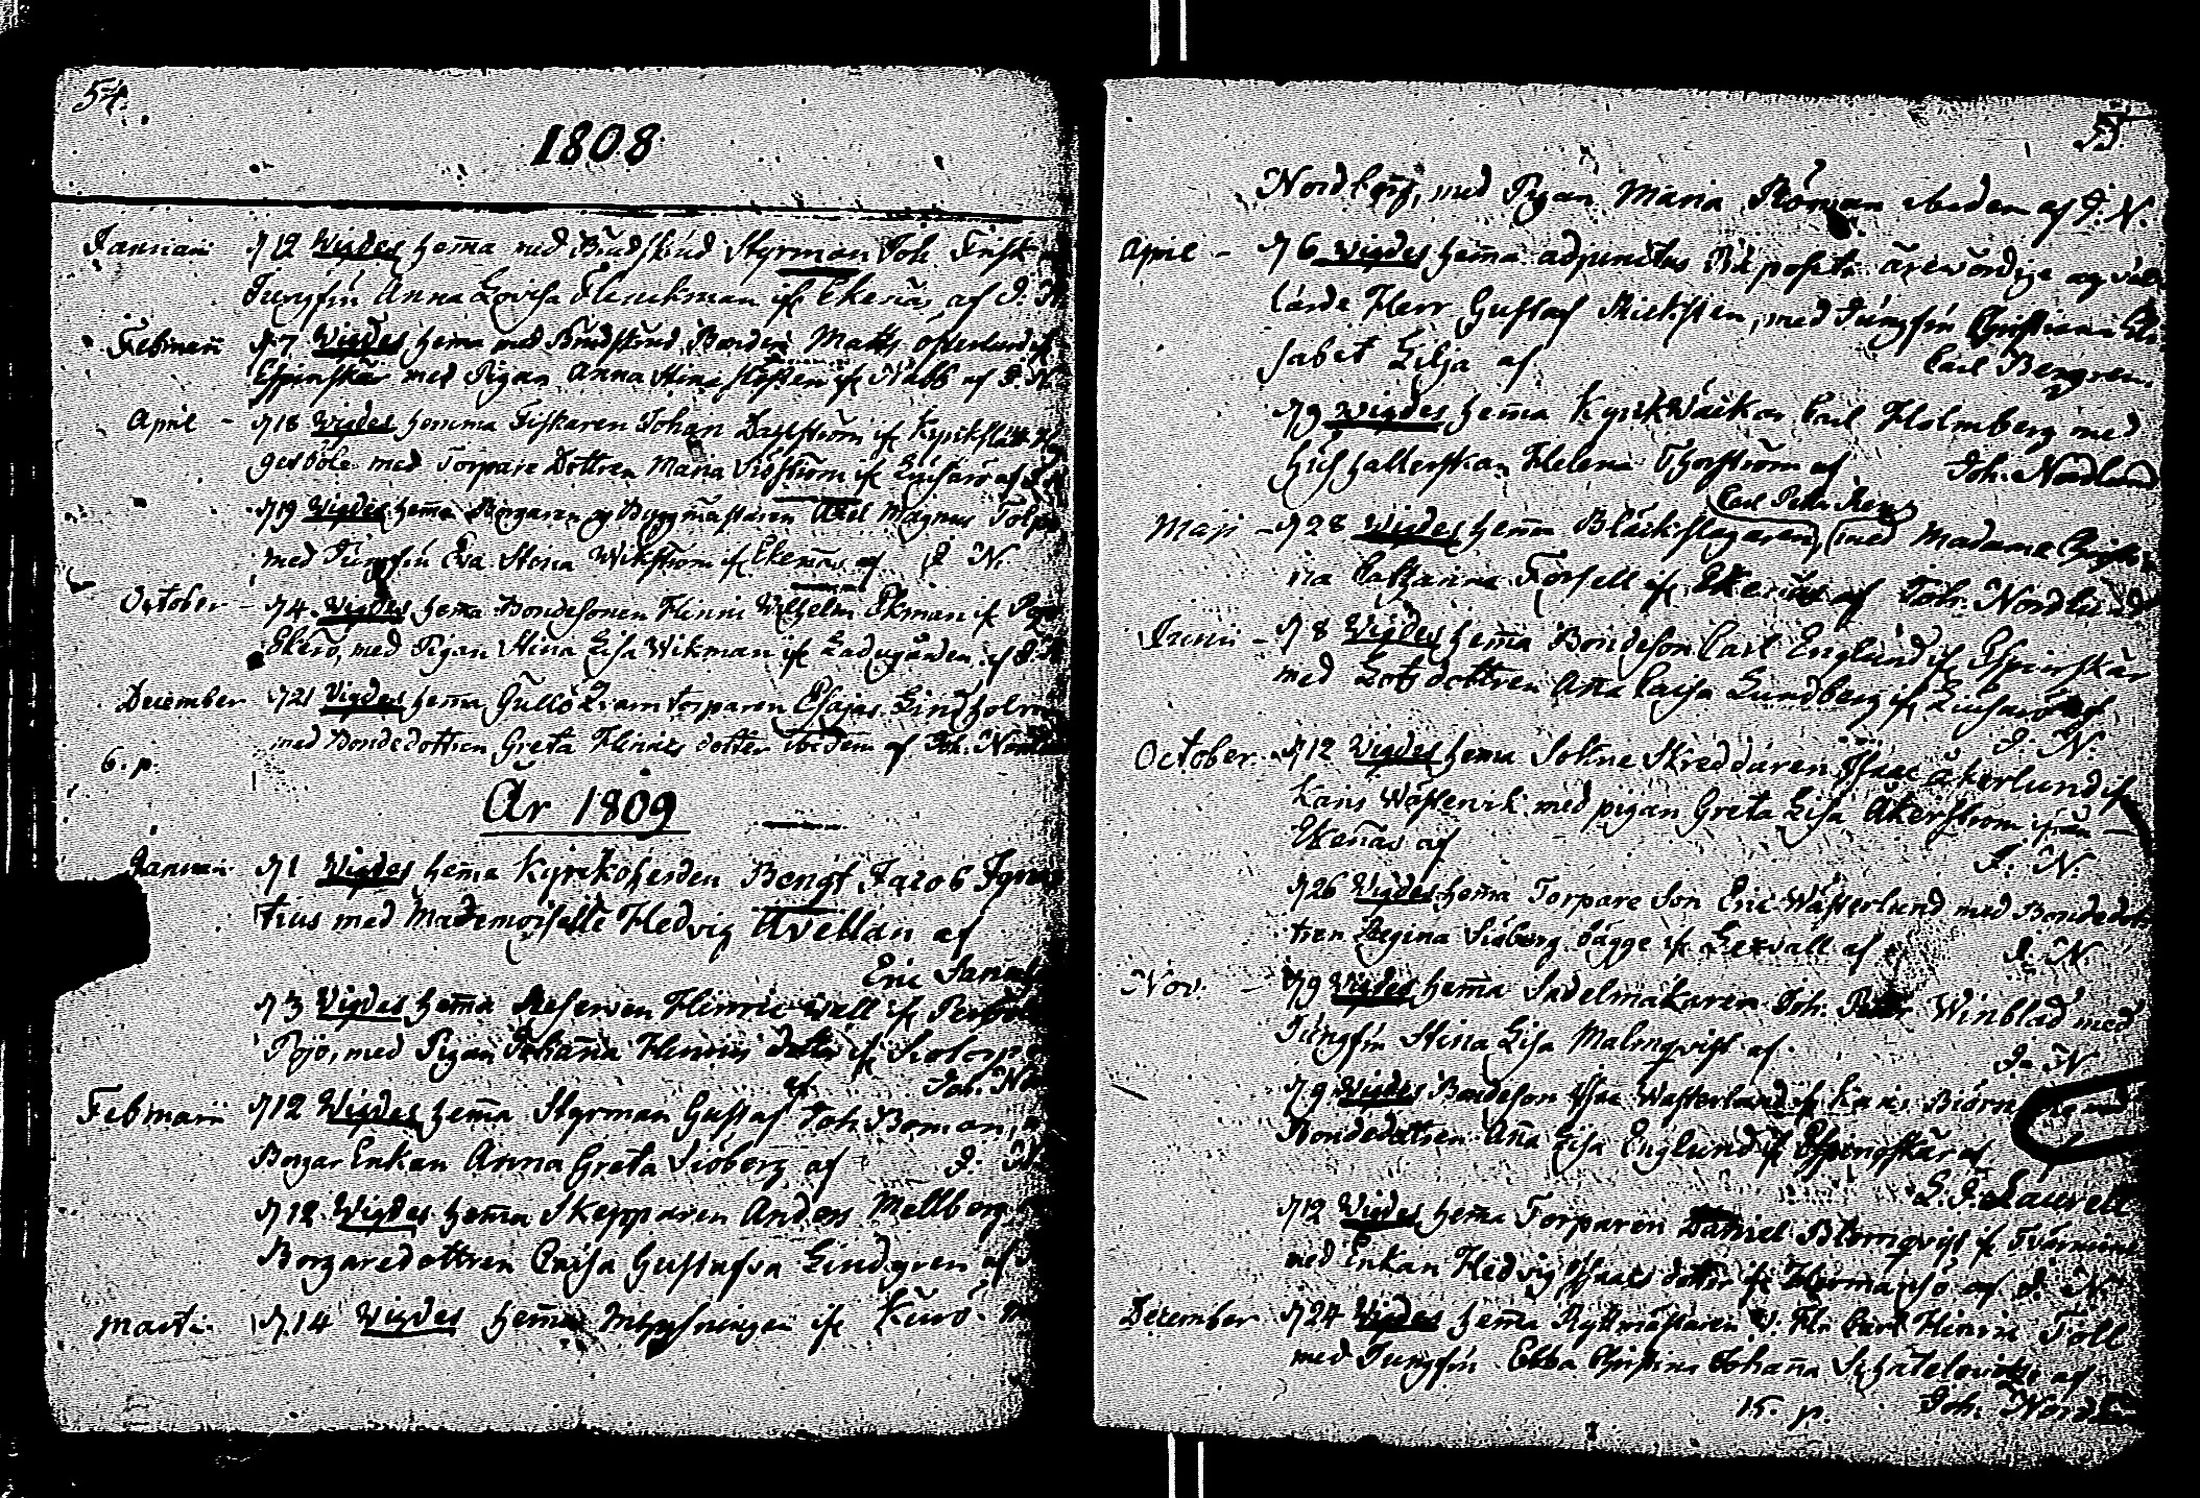 54.
1808
Januari d 12 Wigdes hemma med Budskud Styrman Joh Frisk
Jungfru Anna Lovisa Flinckman if Ekenäs af J. N
Februari d 7 Wigdes hemma med Budskud Bonden Matts Österlund if
Espinskär med Pigan Anna Stina if af J. N
April - d 18 Wigdes hemma Fiskaren Johan Dahlström if Kyrkslätt
gesböle med Torpare Dottren Maria Siöström if af J
d 19 Wigdes hemma Borgaren og Byggmästaren Axel Magnus Tolpo
med Jungfru Eva Stina Wikström if Ekenäs af J N.
October - d 4 Wigdes hemma Bondesonen Hinric Wilhelm Ekman if Pojo
Ekerö, med Pigan Stina Lisa Wikman if Ladugården af J. N
December d 21 Vigdes hemma Gullö Dramtorparen Esajas Lindholm
med Bondedottren Greta Hinrics dotter ibidem af Joh. Nordlu
6. p.
År 1809
Januari d 1 Wigdes hemma Kyrkoherden Bengt Jacob Igna
tius med Mademoiselle Hedvig Avellan af
Eric
d 3 Vigdes hemma Reserven Hinric Wall if
Pojo, med Pigan Johanna Hinrics dotter if
af Joh. No
Februari d 12 Wigdes hemma Styrman Gustaf Joh Boman,
Borgar Enkan Anna Greta Siöberg af J. N
d 12 Wigdes hemma Skepparen Anders Mellberg
Borgaredottren Caisa Gustafva Lindgren af
Marti. d 14 Wigdes hemma Inhysningen if
55.
Nordberg, med Pigan Maria ibidem af J. N.
April - d 6 Wigdes hemma adjunctus Bx posito ärewördige og väl
lärde Herr Gustaf Ricksten, med Jungfru Christiana Eli
sabet Lilja af Carl Bergren.
d 9 Wigdes hemma Kyrkwäckar Carl Holmberg med
Hushållerskan Helena Thorström af Joh. Nordlund
Carl Petter
Maji - d 28 Wigdes hemma Bläckslagaren, med Madame Christi
na Catharina Forsell if Ekenäs af Joh. Nordlund
Junii - d 8 Vigdes hemma Bondeson Carl Englund if Espinskär
med Lotsdottren Anna Caisa Lundberg if af
J. N.
October - d 12 Wigdes hemma Sokne Skreddaren Isaac Åkerlund if
Karis Wästervik med pigan Greta Lisa Åkerström ifrån
Ekenäs af J. N.
d 26 Wigdes hemma Torpare Son Eric Wästerlund med Bondedot
tren Regina Siöberg bägge if Lexvall af J. N.
Nov. - d 9 Vigdes hemma Sadelmakaren Joh. Petter Winblad med
Jungfru Stina Lisa Malmqvist af J. N
d 9 Wigdes Bondeson Isac Wästerlund if Karis Biörn
Bondedottren Anna Lisa Englund if Espingskär af
L. J. Laurell
d 12 Wigdes hemma Torparen Daniel Blomqvist if Tvärminne
med Enkan Hedvig Isaacs dotter if Hermansö af J. N
December d 24 Vigdes hemma Ryttmästaren W. Hr Carl Hinric Toll
med Jungfru Ebba Christina Johanna af
15. p. Joh. Nordl